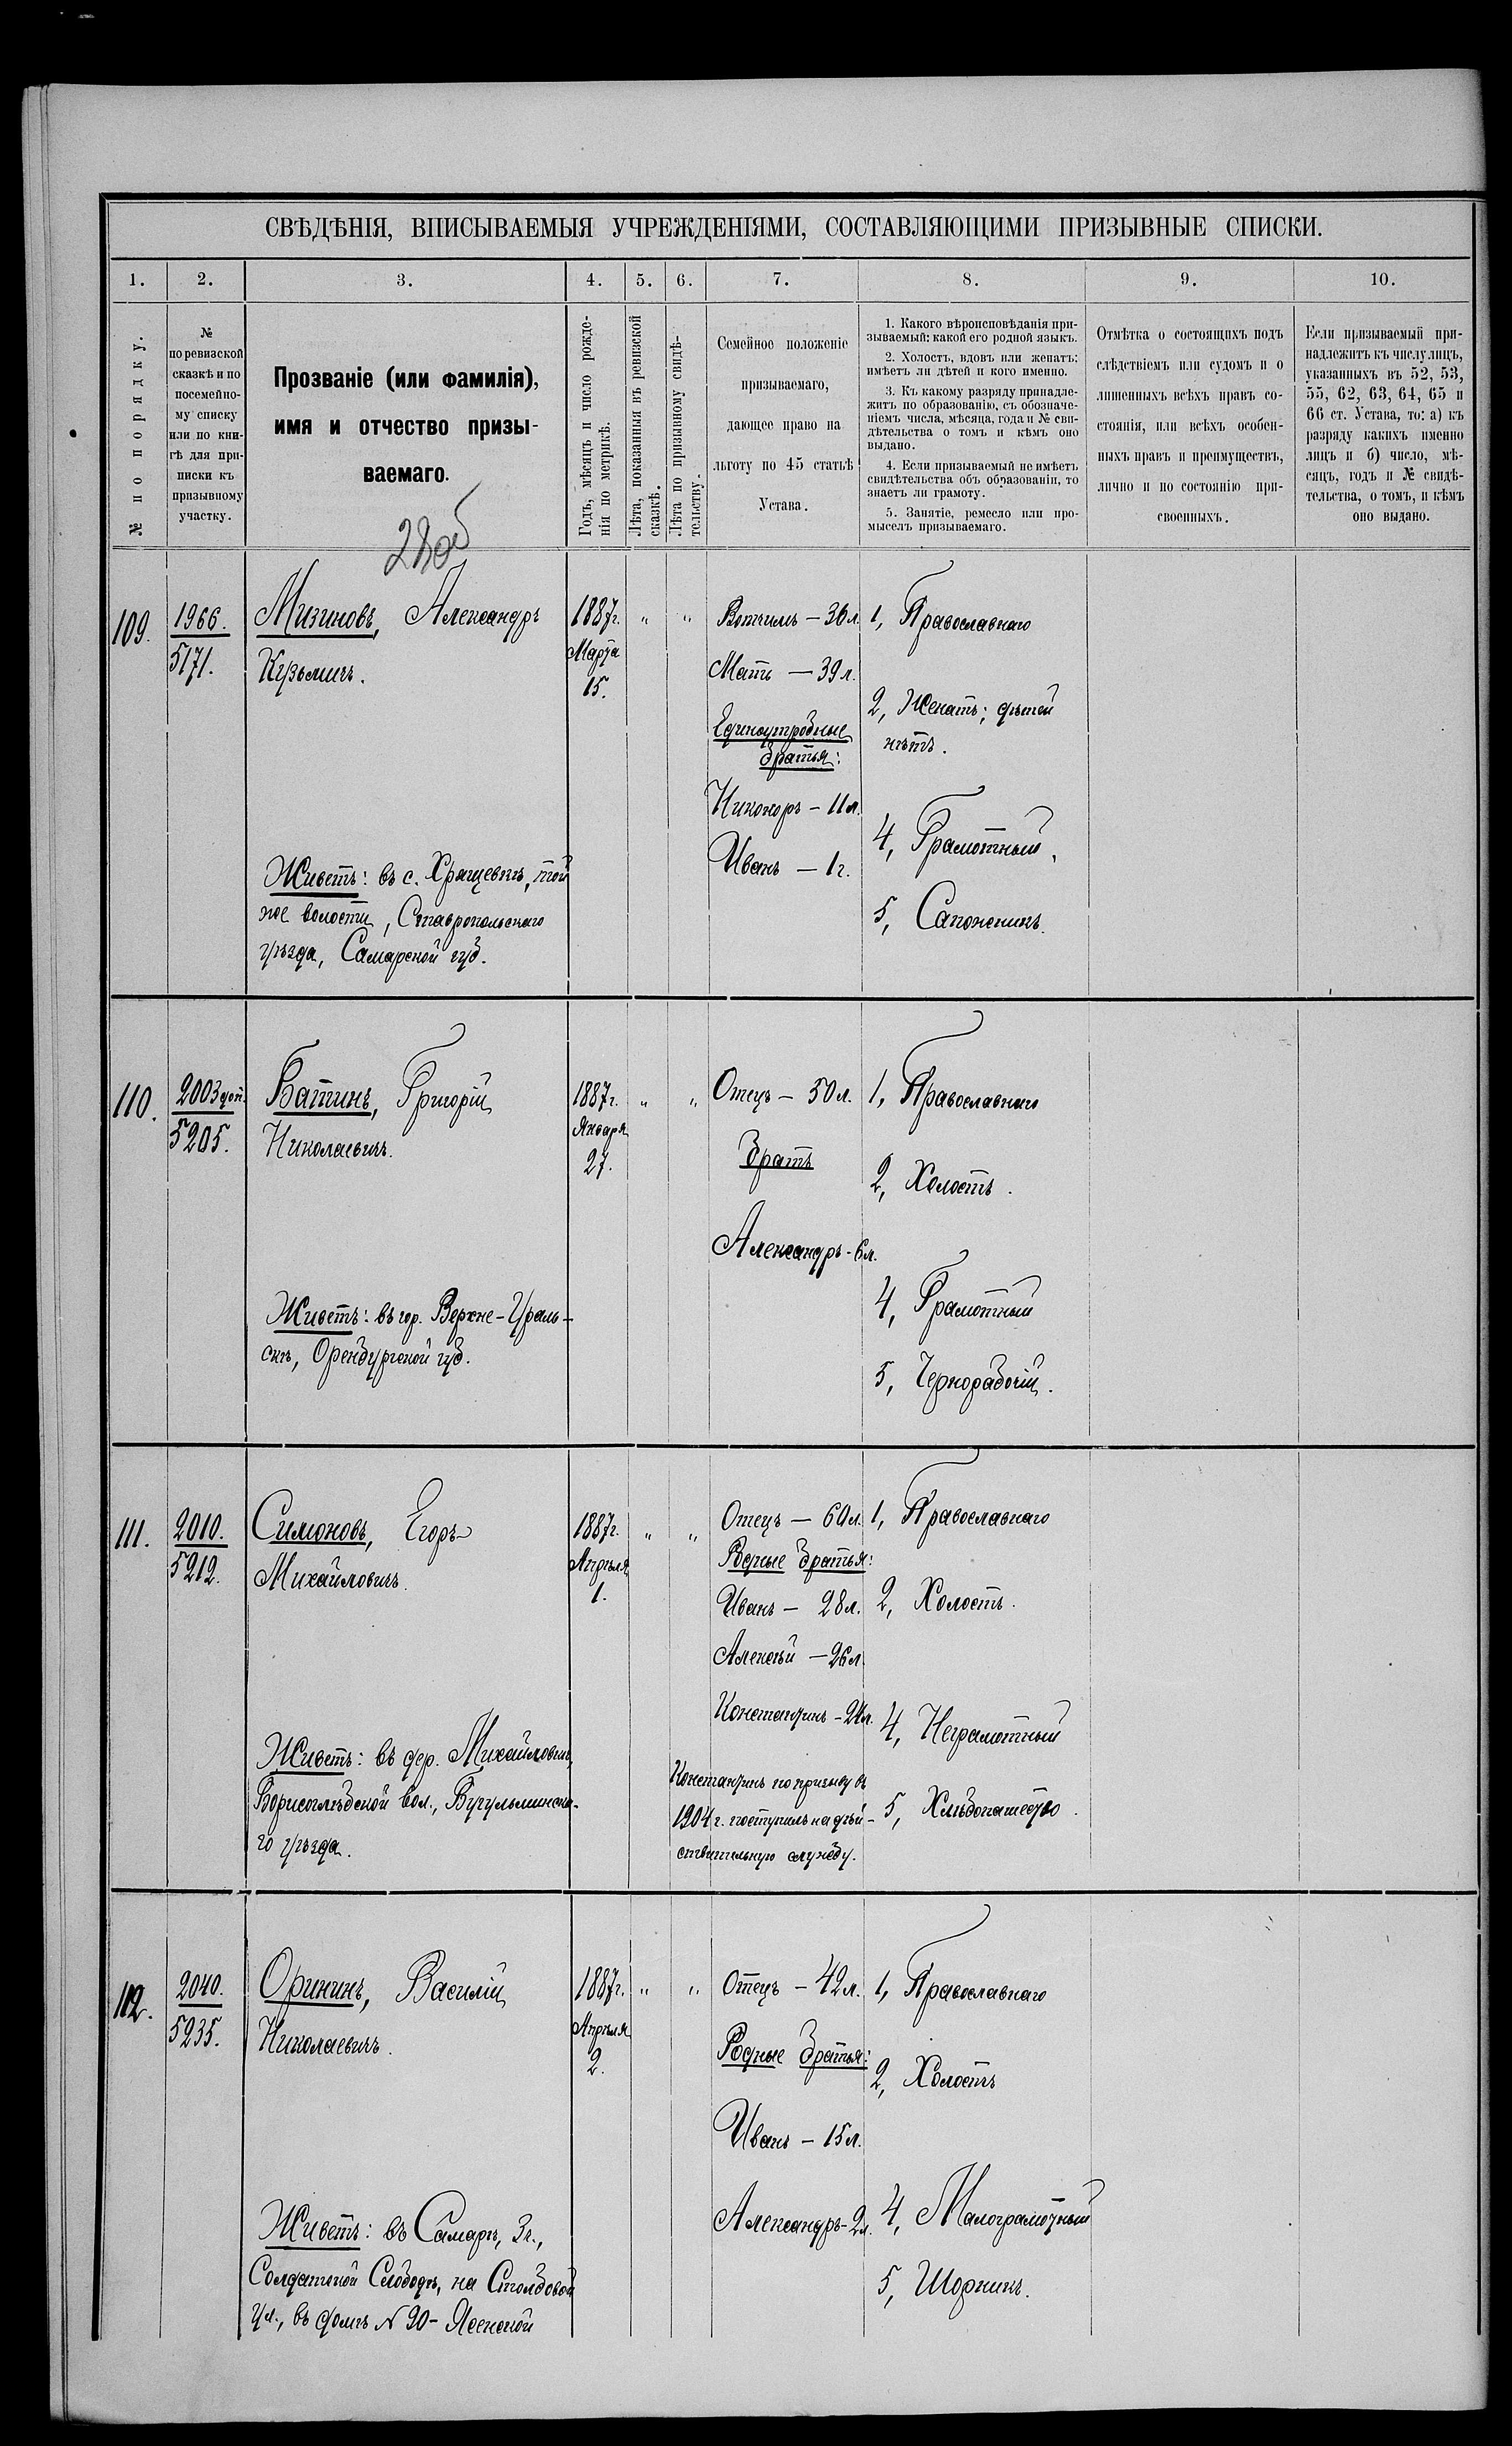 СВѢДѢНІЯ, ВПИСЫВАЕМЫЯ УЧРЕЖДЕНІЯМИ, СОСТАВЛЯЮЩИМИ ПРИЗЫВНЫЕ СПИСКИ.
1. 2. 3. 4. 5. 6. 7. 8. 9. 10.
№ по порядку.
№
по ревизской
сказкѣ и по
посемейно-
му списку
или по кни-
гѣ для при-
писки къ
призывному
участку.
Прозваніе (или фамилія),
имя и отчество призы-
ваемаго.
Годъ, мѣсяцъ и число рожде-
нія по метрикѣ.
Лѣта, показанныя въ ревизской
сказкѣ.
Лѣта по призывному свидѣ-
тельству.
Семейное положеніе
призываемаго,
дающее право на
льготу по 45 статьѣ
Устава.
1. Какого вѣроисповѣданія при-
зываемый: какой его родной языкъ.
2. Холостъ, вдовъ или женатъ:
имѣетъ ли дѣтей и кого именно.
3. Къ какому разряду принадле-
житъ по образованію, съ обозначе-
ніемъ числа, мѣсяца, года и № сви-
дѣтельства о томъ и кѣмъ оно
выдано.
4. Если призываемый не имѣетъ
свидѣтельства объ образованіи, то
знаетъ ли грамоту.
5. Занятіе, ремесло или про-
мыселъ призываемаго.
Отмѣтка о состоящихъ подъ
слѣдствіемъ или судомъ и о
лишенныхъ всѣхъ правъ со-
стоянія, или всѣхъ особен-
ныхъ правъ и преимуществъ,
лично и по состоянію при-
своенныхъ.
Если призываемый при-
надлежитъ къ числу лицъ,
указанныхъ въ 52, 53,
55, 62, 63, 64, 65 и
66 ст. Устава, то: а) къ
разряду какихъ именно
лицъ и б) число, мѣ-
сяцъ, годъ и № свидѣ-
тельства, о томъ, и кѣмъ
оно выдано.
109.
1966.
5171.
Мизиновъ, Александръ
Кузьмичъ.
Живетъ: въ с. Хрящевкѣ, той
же волости, Ставропольскаго
уѣзда, Самарской губ.
1887г.
Марта
15.
"
"
Вотчимъ – 36 л.
Мать – 39 л.
Единоутробные
братья:
Никоноръ – 11 л.
Иванъ – 1 г.
1, Православнаго
2, Женатъ; дѣтей
нѣтъ.
4, Грамотный.
5, Сапожникъ.
110.
2003 доп.
5205.
Батинъ, Григорій
Николаевичъ.
Живетъ: въ гор. Верхне-Ураль-
скѣ, Оренбургской губ.
1887г.
Января
27.
"
"
Отецъ – 50 л.
Братъ
Александръ - 6 л.
1, Православнаго
2, Холостъ.
4, Грамотный
5, Чернорабочій.
111.
2010.
5212.
Симоновъ, Егоръ
Михайловичъ.
Живетъ: въ дер. Михайловкѣ,
Борисоглѣбской вол., Бугульминска-
го уѣзда.
1887г.
Апрѣля
1.
"
"
Отецъ – 60 л.
Родные братья:
Иванъ – 28 л.
Алексѣй – 26 л.
Константинъ – 24 л.
Константинъ по призыву въ
1904 г. поступилъ на дѣй-
ствительную службу.
1, Православнаго
2, Холостъ.
4, Неграмотный
5, Хлѣбопашество.
112.
2040.
5235.
Оринин​ъ, Василій
Николаевичъ.
Живетъ: въ Самарѣ, 3 ч.,
Солдатской Слободѣ, на Столбовой
ул., въ домѣ № 90 –
1887г.
Апрѣля
2.
"
"
Отецъ – 42 л.
Родные братья:
Иванъ – 15 л.
Александръ - 2 л.
1, Православнаго
2, Холостъ
4, Малограмотный
5, Шорникъ.